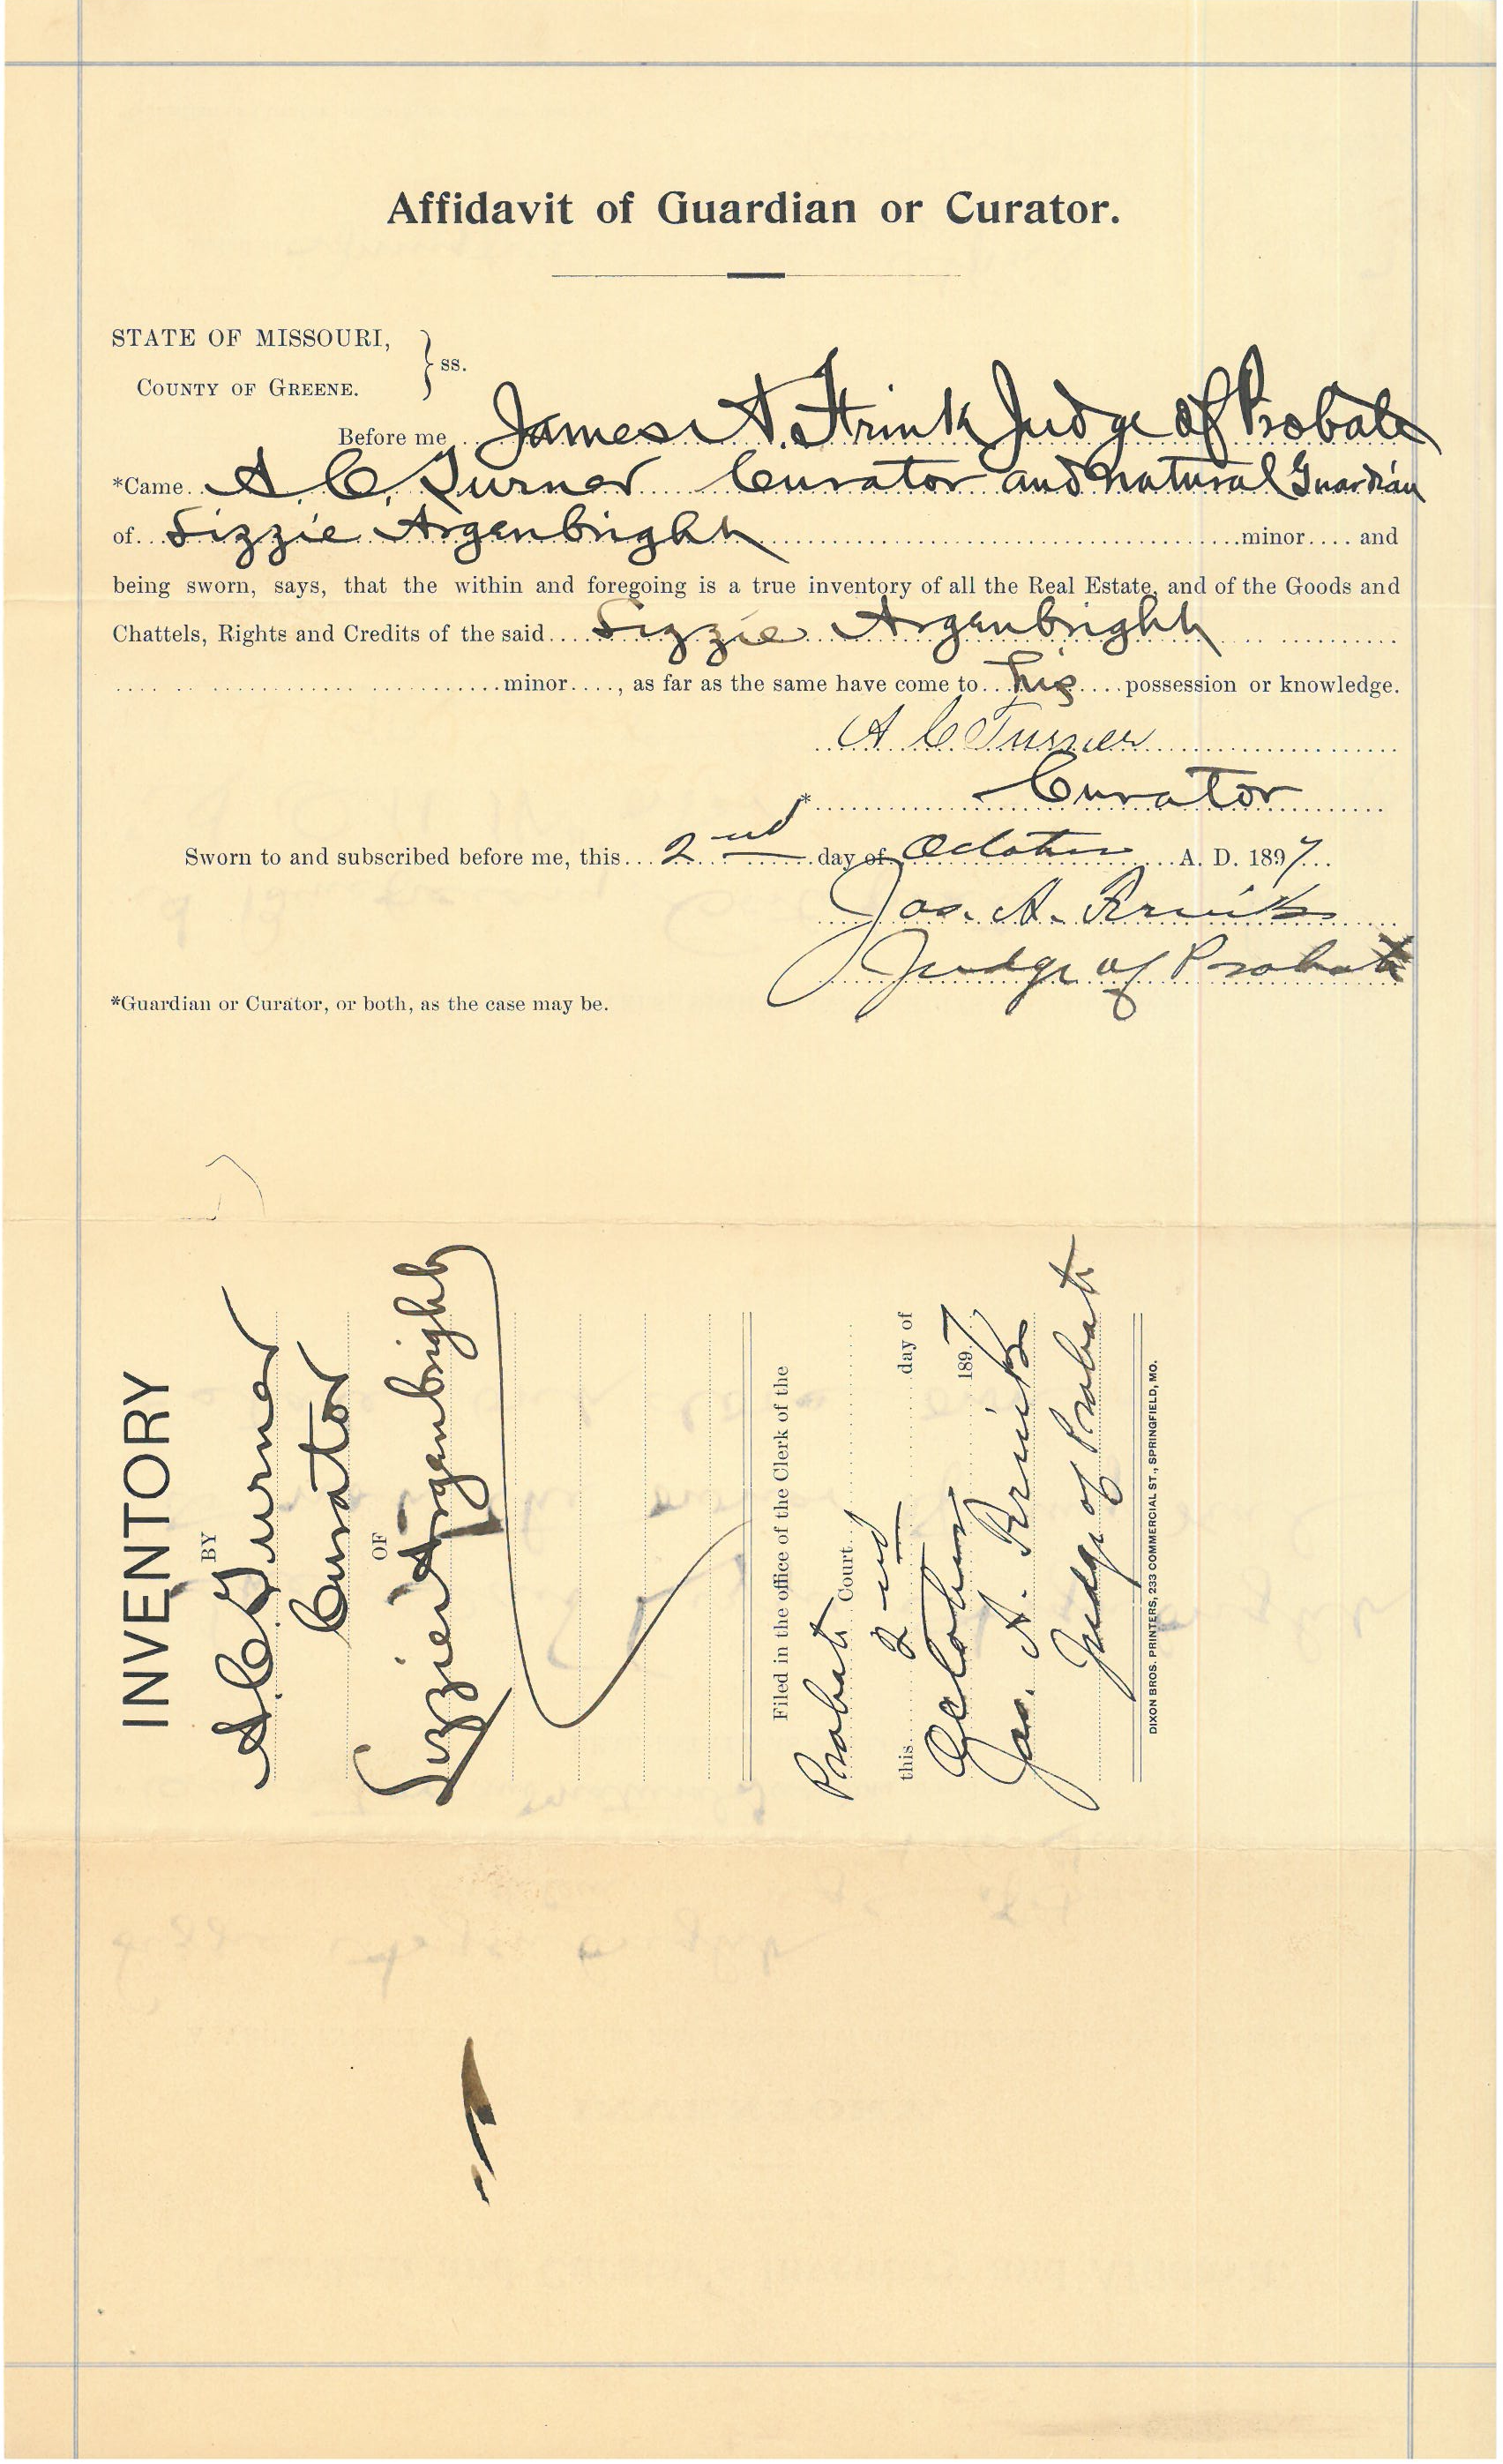 Affidavit of Guardian or Curator.
STATE OF MISSOURI,
COUNTY OF GREENE. } ss.
Before me James A. Frink Judge of Probate
*Came A. C. Turner Curator and natural Guardian
of Lizzie Argenbright minor and
being sworn, says, that the within and foregoing is a true inventory of all the Real Estate, and of the Goods and
Chattels, Rights and Credits of the said Lizzie Argenbright
minor, as far as the same have come to his possession or knowledge.
A C Turner
* Curator
Sworn to and subscribed before me, this 2nd day of October A. D. 1897
Jas. A. Frink
Judge of Probate
*Guardian or Curator, or both, as the case may be.
INVENTORY
BY
A C Turner
Curator
OF
Lizzie Argenbright
Filed in the office of the Clerk of the
Probate Court
this 2nd day of
October 1897
Jas. A. Frink
Judge of Probate
DIXON BROS. PRINTERS, 233 COMMERCIAL ST., SPRINGFIELD, MO.